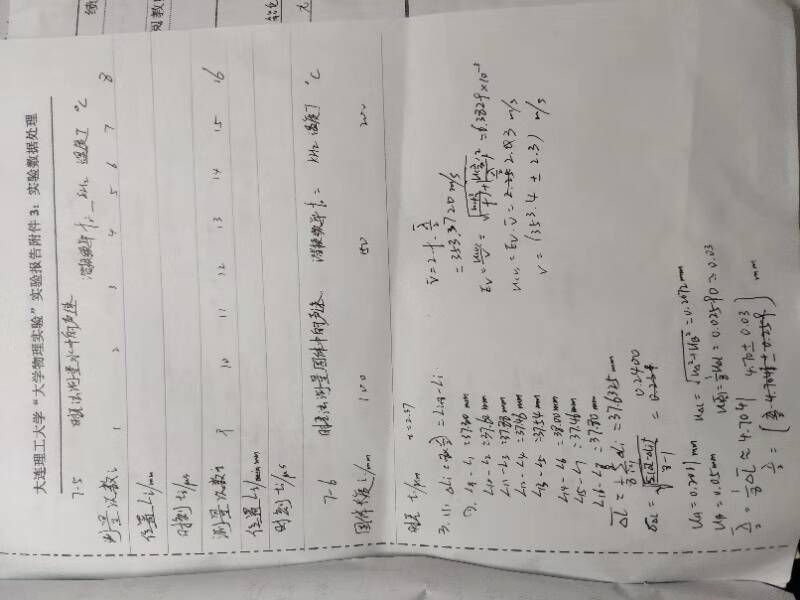 大连理工大学“大学物理实验”实验报告附件3：实验数据处理
7-5 时差法测量水中的声速 谐振频率f₀ kHz 温度T ℃
测量次数i 1 2 3 4 5 6 7 8
位置Li/mm
时刻ti/μs
测量次数i 9 10 11 12 13 14 15 16
位置Li/mm
时刻ti/μs
7-6 时差法测量固体中的声速 谐振频率f₀ = kHz 温度T ℃
固体长度i/mm 100 150 200
t=2.37
3. (1) ΔLi = 8×λ/2 = Li+8-Li
L9-L1 = 37.30 mm
L10-L2 = 37.62 mm
L11-L3 = 37.88 mm
L12-L4 = 37.46 mm
L13-L5 = 37.54 mm
L14-L6 = 38.00 mm
L15-L7 = 37.46 mm
L16-L8 = 37.80 mm
ΔL = 1/8 Σ ΔLi = 37.6325 mm
σΔL = √(Σ(ΔL-ΔLi)²/(8-1)) = 0.2400
UA = 0.2011 mm UΔL = √(UA²+UB²) = 0.2072 mm
UB = 0.05 mm = 1/8 UΔL = 0.02590 ≈ 0.03
λ/2 = 1/8 ΔL ≈ 4.7041
λ/2 = (4.70 ± 0.03) mm
v = 2·f·λ/2
= 353.3720 m/s
= 6.3829 × 10⁻³
= Ev·v = 2.03 m/s
v = (353.4 ± 2.3) m/s